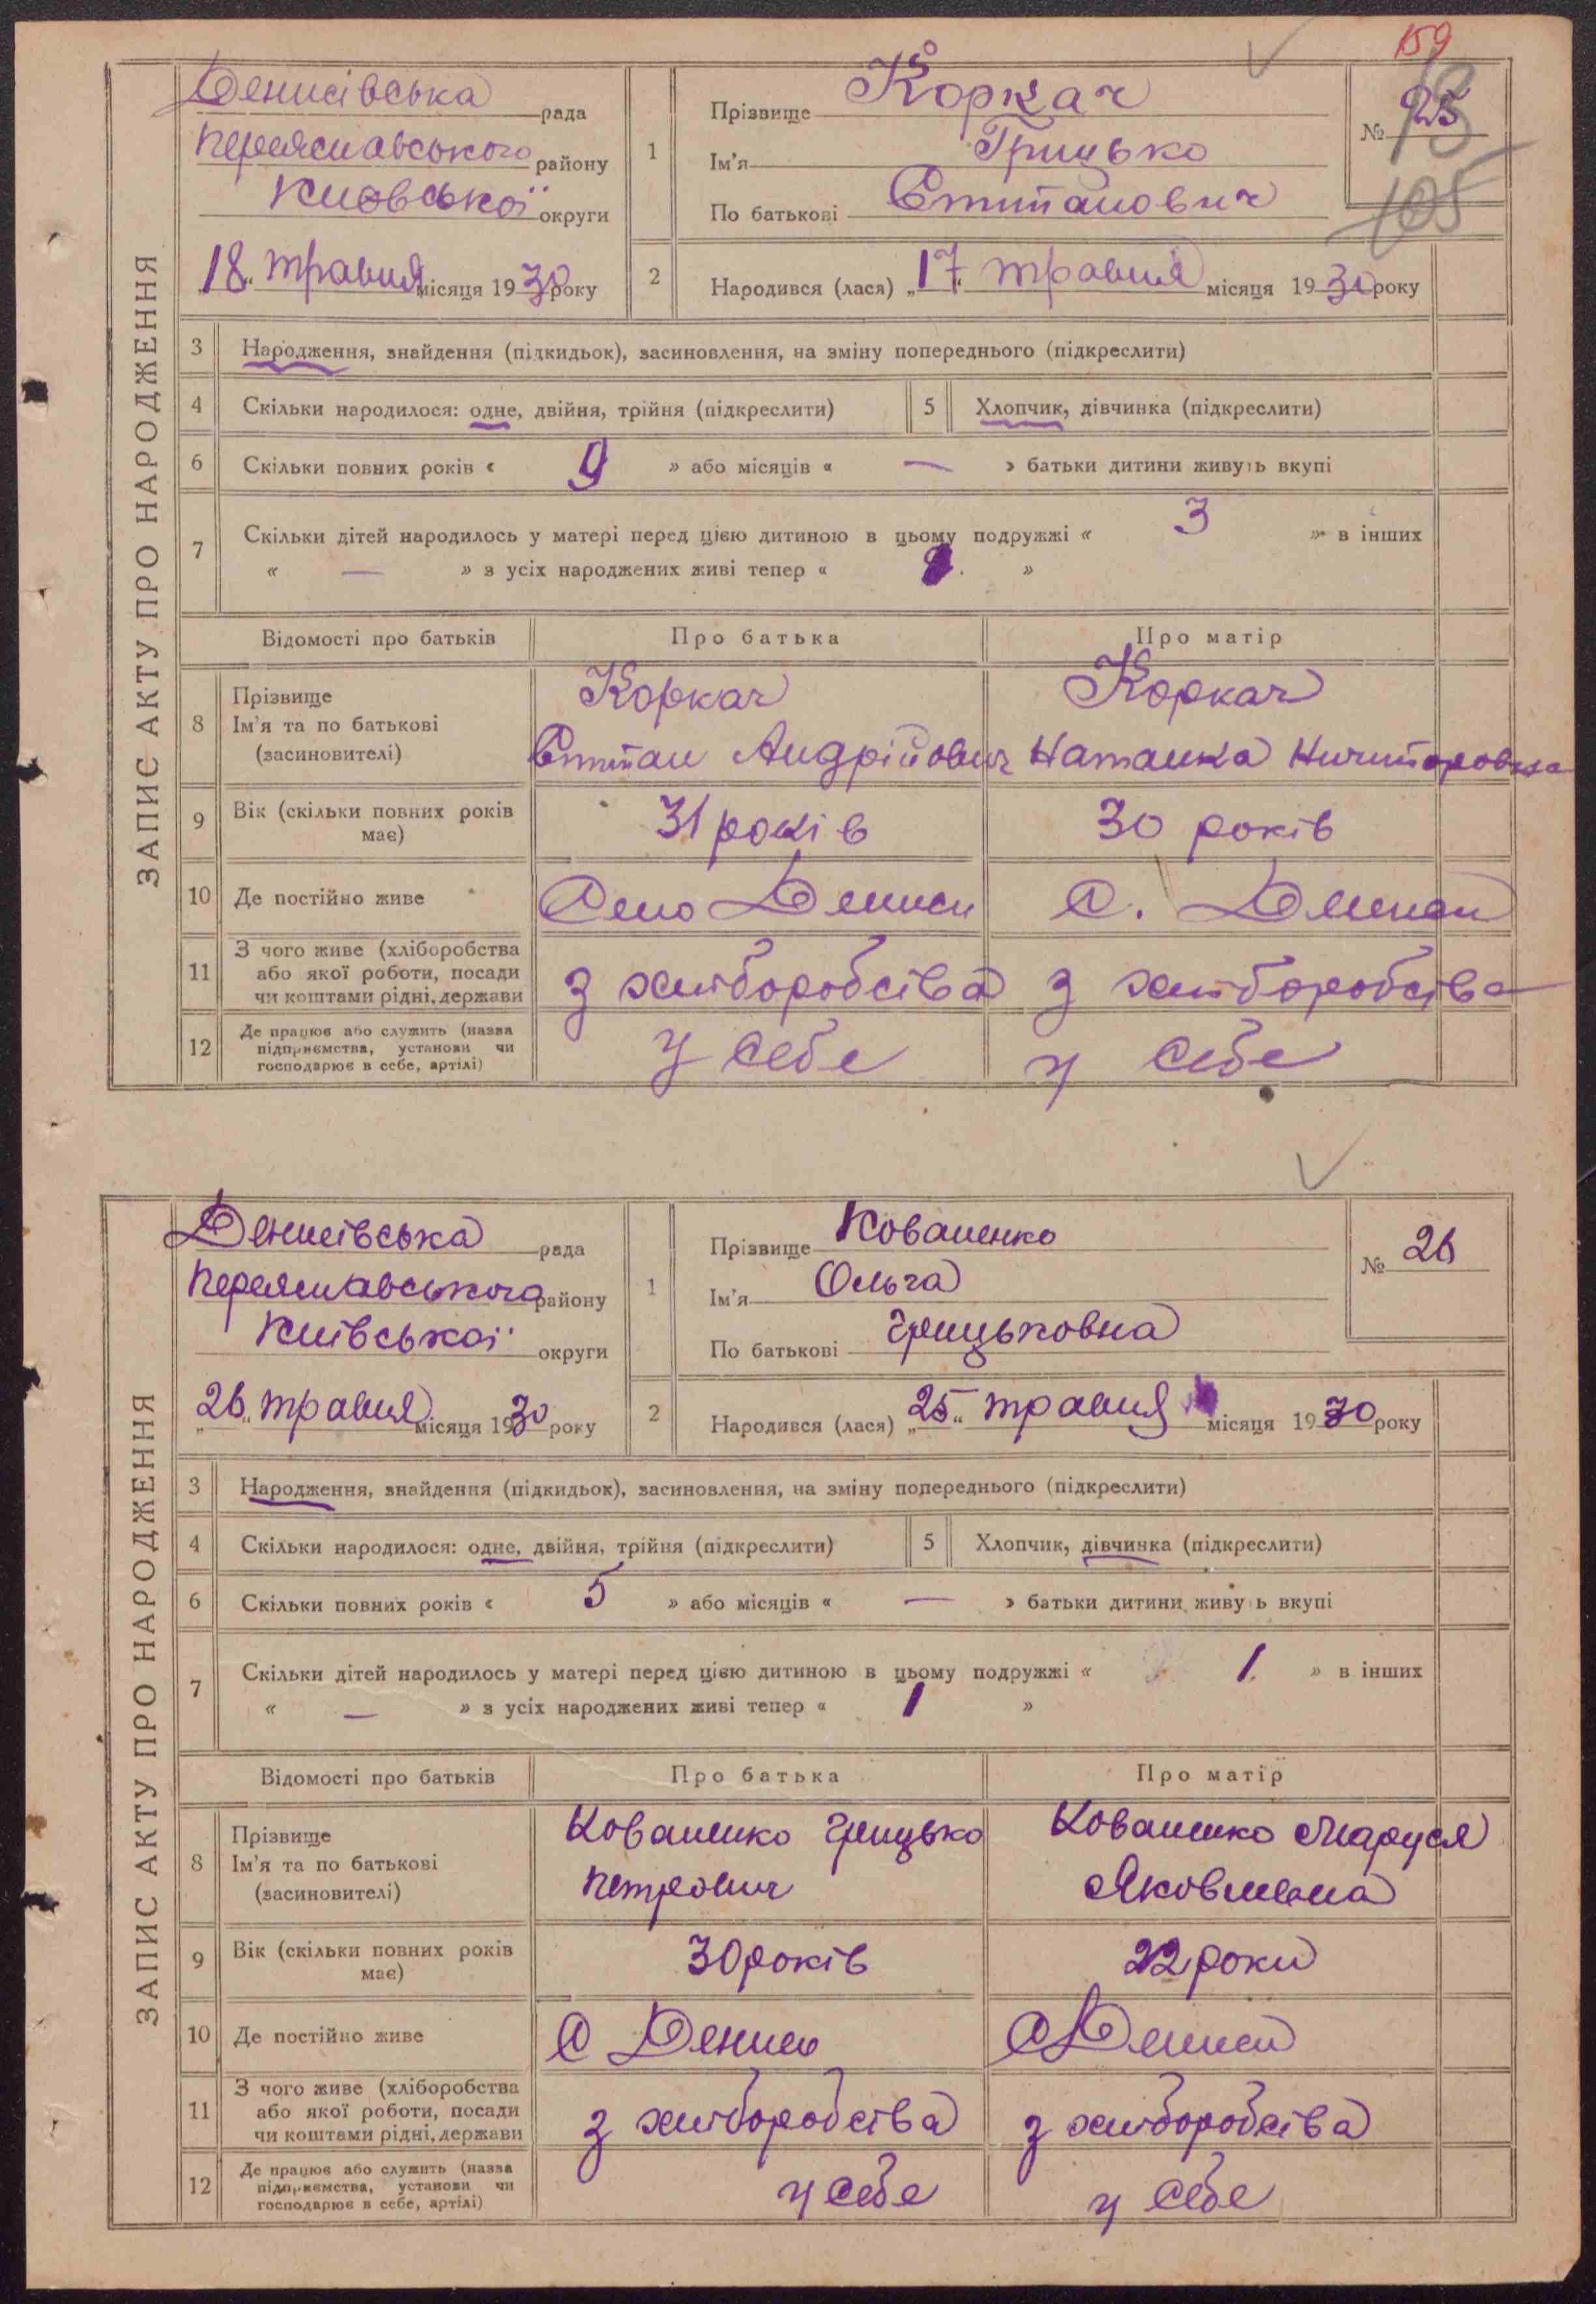 159
ЗАПИС АКТУ ПРО НАРОДЖЕННЯ
Денисівська рада
Переяславського району
Київської округи
„18“ травня місяця 1930 року
1
Прізвище Коркач
Ім'я Грицько
По батькові
№ 25
105
2
Народився (лася) „17“ травня місяця 1930 року
3 Народження, знайдення (підкидьок), засиновлення, на зміну попереднього (підкреслити)
4 Скільки народилося: одне, двійня, трійня (підкреслити)
5 Хлопчик, дівчинка (підкреслити)
6 Скільки повних років « 9 » або місяців « — » батьки дитини живуть вкупі
7 Скільки дітей народилось у матері перед цією дитиною в цьому подружжі « 3 » в інших
« — » з усіх народжених живі тепер « »
Відомості про батьків Про батька Про матір
8 Прізвище
Ім'я та по батькові
(засиновителі)
Коркач
Андрійович
Коркач
Наталка
9 Вік (скільки повних років
має)
31 років
30 років
10 Де постійно живе
Село Дениси
С. Дениси
11 З чого живе (хліборобства
або якої роботи, посади
чи коштами рідні, держави
з хліборобства
з хліборобства
12 Де працює або служить (назва
підприємства, установи чи
господарює в себе, артілі)
У себе
у себе
ЗАПИС АКТУ ПРО НАРОДЖЕННЯ
Денисівська рада
Переяславського району
Київської округи
„26“ травня місяця 1930 року
1
Прізвище Коваленко
Ім'я Ольга
По батькові Грицьковна
№ 26
2
Народився (лася) „25“ травня місяця 1930 року
3 Народження, знайдення (підкидьок), засиновлення, на зміну попереднього (підкреслити)
4 Скільки народилося: одне, двійня, трійня (підкреслити)
5 Хлопчик, дівчинка (підкреслити)
6 Скільки повних років « 5 » або місяців « — » батьки дитини живуть вкупі
7 Скільки дітей народилось у матері перед цією дитиною в цьому подружжі « 1. » в інших
« — » з усіх народжених живі тепер « 1 »
Відомості про батьків Про батька Про матір
8 Прізвище
Ім'я та по батькові
(засиновителі)
Коваленко Грицько
Петрович
Коваленко Маруся
Яковлевна
9 Вік (скільки повних років
має)
30 років
22 роки
10 Де постійно живе
С Дениси
С Дениси
11 З чого живе (хліборобства
або якої роботи, посади
чи коштами рідні, держави
з хліборобства
з хліборобства
12 Де працює або служить (назва
підприємства, установи чи
господарює в себе, артілі)
у себе
у себе